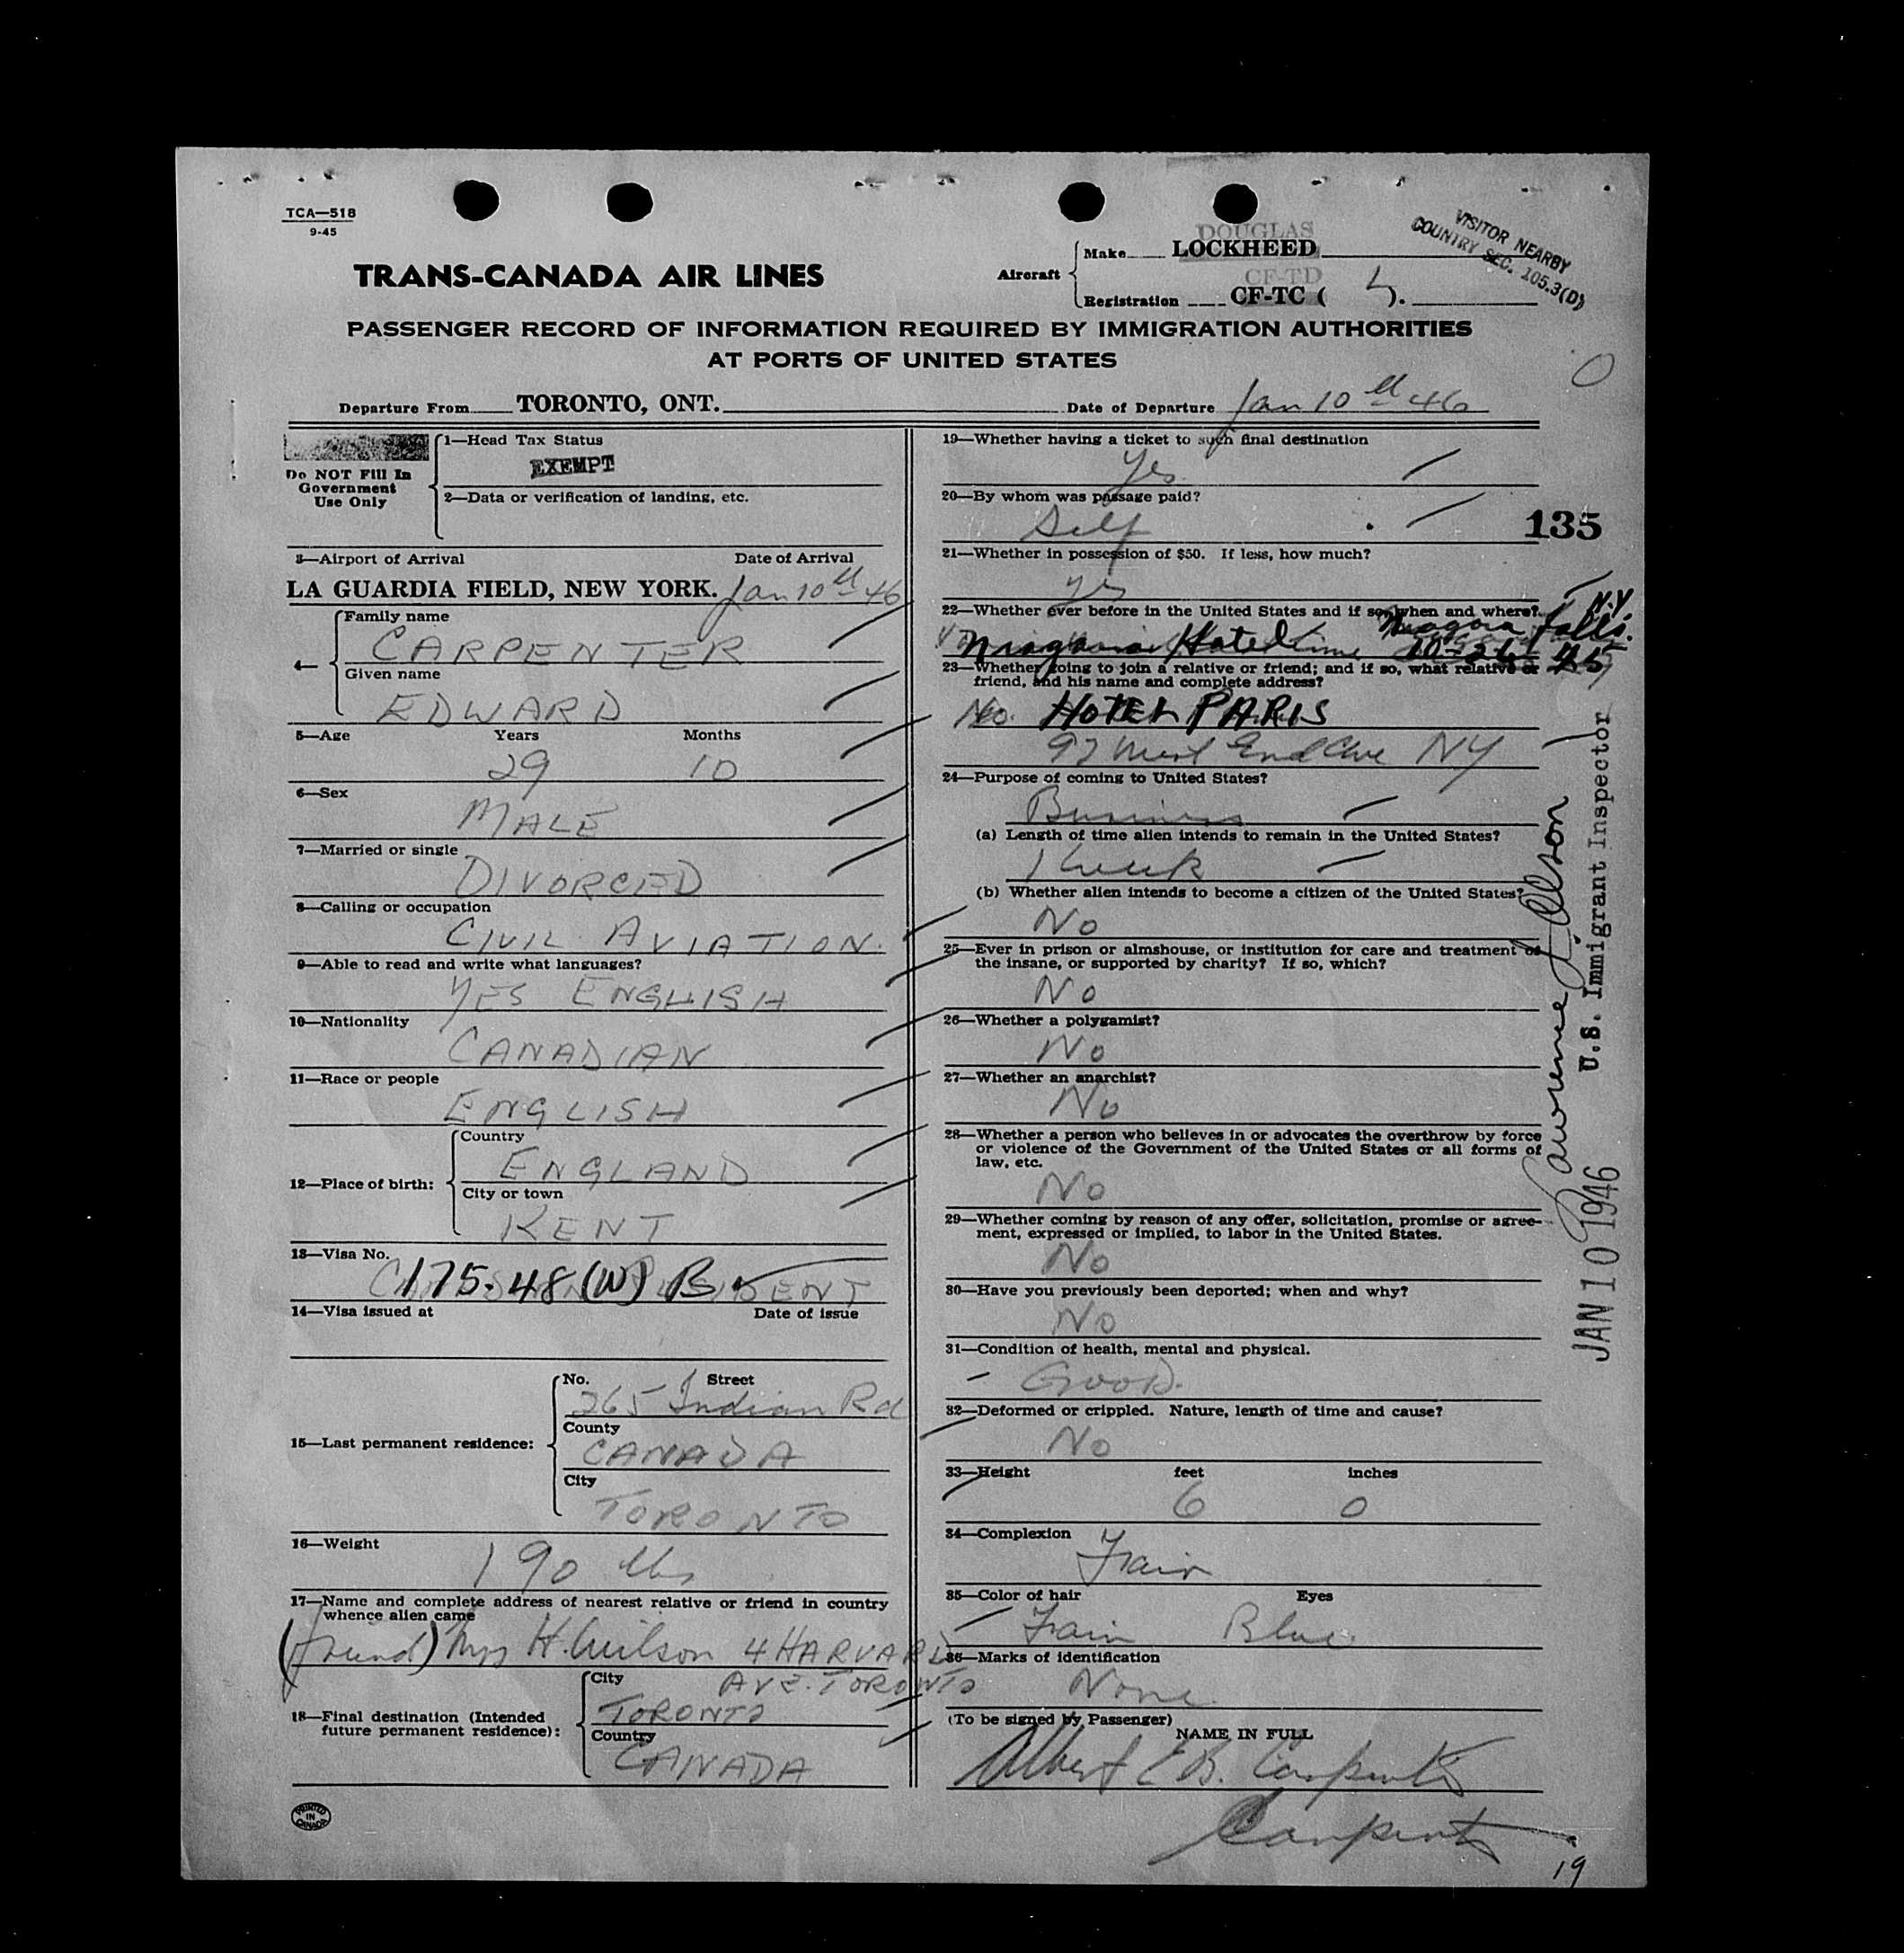 TCA—518
9-45
TRANS-CANADA AIR LINES
Aircraft
DOUGLAS
Make LOCKHEED
CF-TD
Registration CF-TC ( ).
VISITOR NEARBY
COUNTRY SEC. 105.3(D)
PASSENGER RECORD OF INFORMATION REQUIRED BY IMMIGRATION AUTHORITIES
AT PORTS OF UNITED STATES
Departure From TORONTO, ONT. Date of Departure Jan 10th 46
Do NOT Fill In
Government
Use Only
1—Head Tax Status
EXEMPT
2—Data or verification of landing, etc.
3—Airport of Arrival Date of Arrival
LA GUARDIA FIELD, NEW YORK. Jan 10th 46
4—
Family name
CARPENTER
Given name
EDWARD
5—Age Years Months
29 10
6—Sex
MALE
7—Married or single
DIVORCED
8—Calling or occupation
CIVIL AVIATION.
9—Able to read and write what languages?
YES ENGLISH
10—Nationality
CANADIAN
11—Race or people
ENGLISH
12—Place of birth:
Country
ENGLAND
City or town
KENT
13—Visa No.
175.48 (W) B
14—Visa issued at Date of issue
15—Last permanent residence:
No. Street
265 Indian Rd
County
CANADA
City
TORONTO
16—Weight
190 lbs
17—Name and complete address of nearest relative or friend in country
whence alien came
(friend) H. Wilson 4 HARVARD
AVE. TORONTO
18—Final destination (Intended
future permanent residence):
City
TORONTO
Country
CANADA
PRINTED
IN
CANADA
19—Whether having a ticket to such final destination
Yes.
20—By whom was passage paid?
Self
135
21—Whether in possession of $50. If less, how much?
yes
22—Whether ever before in the United States and if so, when and where?
Niagara Hotel Niagara Falls. N.Y.
23—Whether going to join a relative or friend; and if so, what relative or
friend, and his name and complete address?
No. HOTEL PARIS
97 West End Ave NY
24—Purpose of coming to United States?
Business
(a) Length of time alien intends to remain in the United States?
1 week
(b) Whether alien intends to become a citizen of the United States?
No
25—Ever in prison or almshouse, or institution for care and treatment of
the insane, or supported by charity? If so, which?
No
26—Whether a polygamist?
No
27—Whether an anarchist?
No
28—Whether a person who believes in or advocates the overthrow by force
or violence of the Government of the United States or all forms of
law, etc.
No
29—Whether coming by reason of any offer, solicitation, promise or agree-
ment, expressed or implied, to labor in the United States.
No
30—Have you previously been deported; when and why?
No
31—Condition of health, mental and physical.
Good.
32—Deformed or crippled. Nature, length of time and cause?
No
33—Height feet inches
6 0
34—Complexion
Fair
35—Color of hair Eyes
Fair Blue.
36—Marks of identification
None.
(To be signed by Passenger)
NAME IN FULL
Albert E B. Carpenter
Carpenter
19
Lawrence J. Olson
U.S. Immigrant Inspector
JAN 10 1946